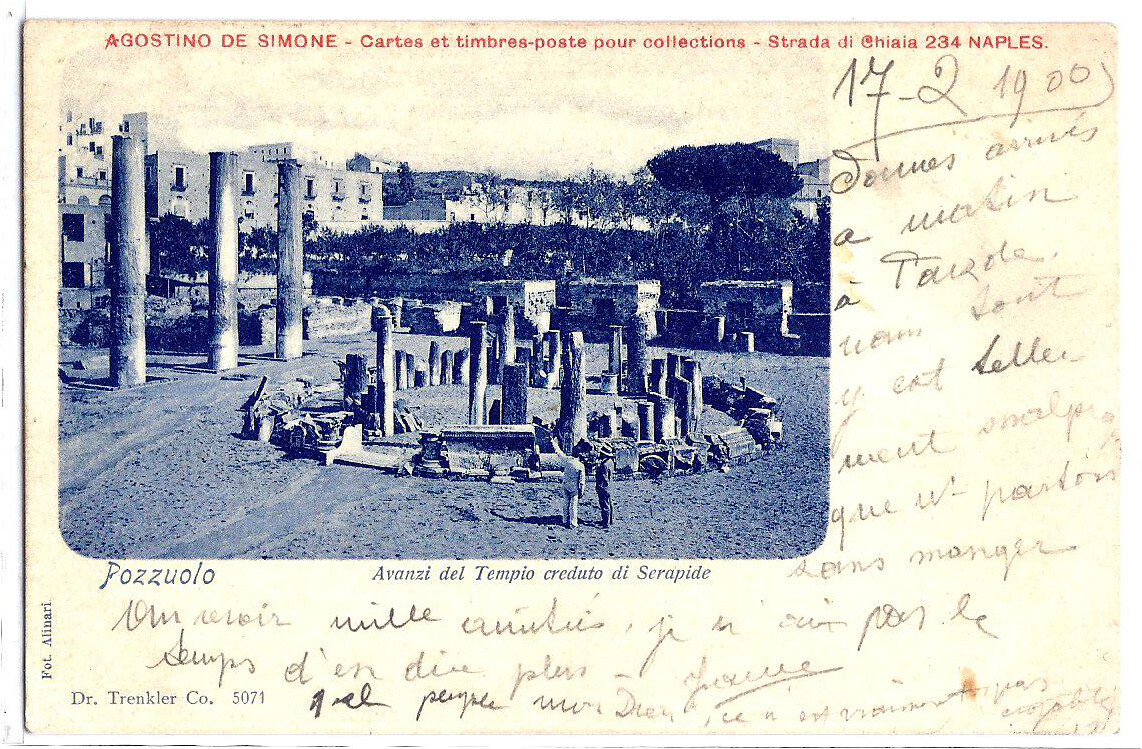 AGOSTINO DE SIMONE - Cartes et timbres-poste pour collections - Strada di Chiaia 234 NAPLES.
17-2 1900
arrivés
a matin
à
sont
y est telle
ment
que ns partons
sans manger
Pozzuolo
Avanzi del Tempio creduto di Serapide
Fot. Alinari
Au revoir mille amitiés, je n'ai pas le
temps d'en dire plus -
Dr. Trenkler Co. 5071
peuple mon Dieu, ce n'est vraiment pas